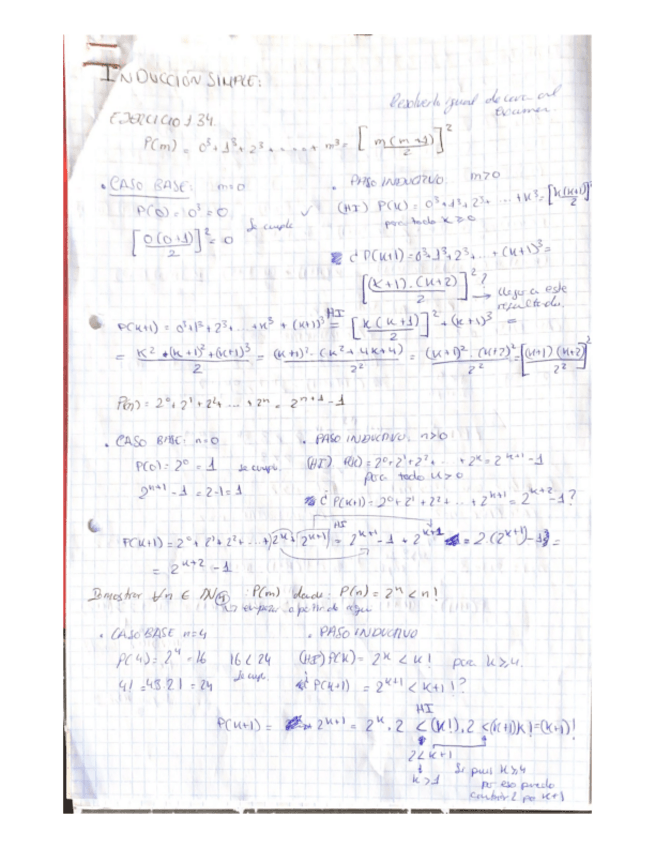 INDUCCIÓN SIMPLE:
Resolverlo igual de cara al examen.
EJERCICIO 134.
P(m) = 0³+1³+2³+.....+m³ = [m(m+1)/2]²
• CASO BASE: m=0
P(0) = 0³ = 0
Se cumple ✓
[0(0+1)/2]² = 0
• PASO INDUCTIVO: m>0
(HI) P(K) = 0³+1³+2³+...+K³ = [K(K+1)/2]²
para todo K≥0
¿P(K+1) = 0³+1³+2³+...+(K+1)³ =
[(K+1)·(K+2)/2]²? → llegar a este resultado.
P(K+1) = 0³+1³+2³+...+K³+(K+1)³ =HI [K(K+1)/2]² + (K+1)³ =
= K²+(K+1)²+(K+1)³/2 = (K+1)²·(K²+4K+4)/2² = (K+1)²·(K+2)²/2² = [(K+1)(K+2)/2²]²
P(n) = 2⁰+2¹+2²+...+2ⁿ = 2ⁿ⁺¹-1
• CASO BASE: n=0
P(0) = 2⁰ = 1 se cumple
2ⁿ⁺¹-1 = 2-1 = 1
• PASO INDUCTIVO: n>0
(HI) P(K) = 2⁰+2¹+2²+...+2ᴷ = 2ᴷ⁺¹-1
para todo K>0
¿P(K+1) = 2⁰+2¹+2²+...+2ᴷ⁺¹ = 2ᴷ⁺²-1?
P(K+1) = 2⁰+2¹+2²+...+2ᴷ+2ᴷ⁺¹ =HI 2ᴷ⁺¹-1+2ᴷ⁺¹ = 2·(2ᴷ⁺¹)-1 =
= 2ᴷ⁺²-1
Demostrar ∀n ∈ IN④ P(m) donde: P(n) = 2ⁿ < n!
• CASO BASE n=4
P(4) = 2⁴ = 16 16 < 24
Se cumple
4! = 4·3·2·1 = 24
• PASO INDUCTIVO
(HI) P(K) = 2ᴷ < K! para K≥4.
¿P(K+1) = 2ᴷ⁺¹ < K+1!?
P(K+1) = 2ᴷ⁺¹ = 2ᴷ·2 <HI (K!)·2 < (K+1)K! = (K+1)!
2 < K+1
K>1
Si pues K≥4
por eso puedo
cambiar 2 por K+1